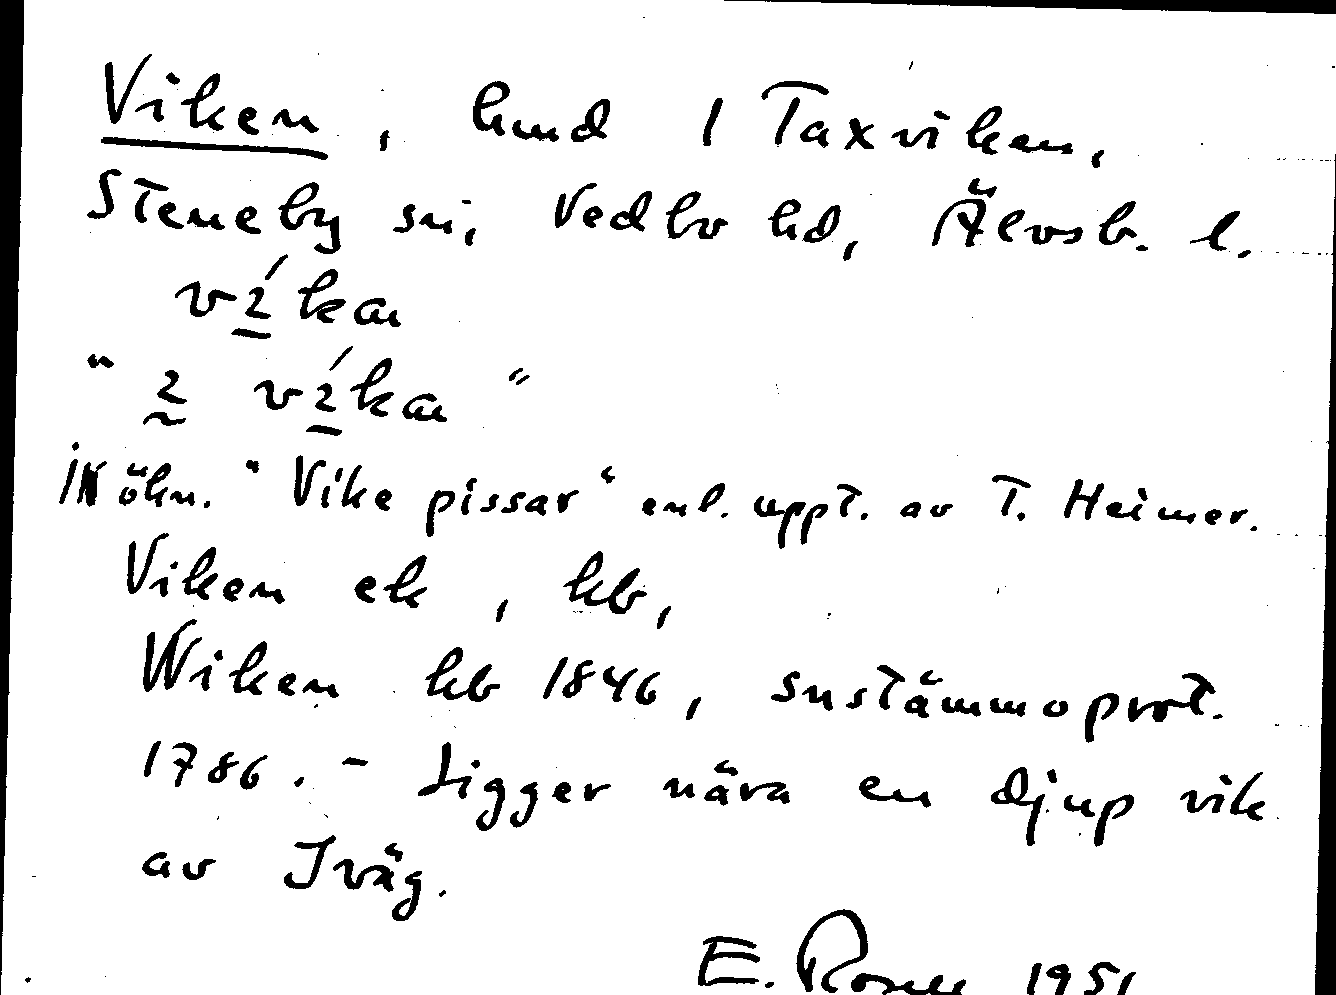 Viken, hmd 1 Taxviken,
Steneby sn, Vedbo hd, Älvsb. l.
ví̲kan
“ i ví̲kan ”
öкn. "Vike pissar" enl. uppt. av T. Heimer.
Viken ek, kb,
Wiken kb 1846, snstämmoprot.
1786. - Ligger nära en djup vik
av Iväg.
E. 1951